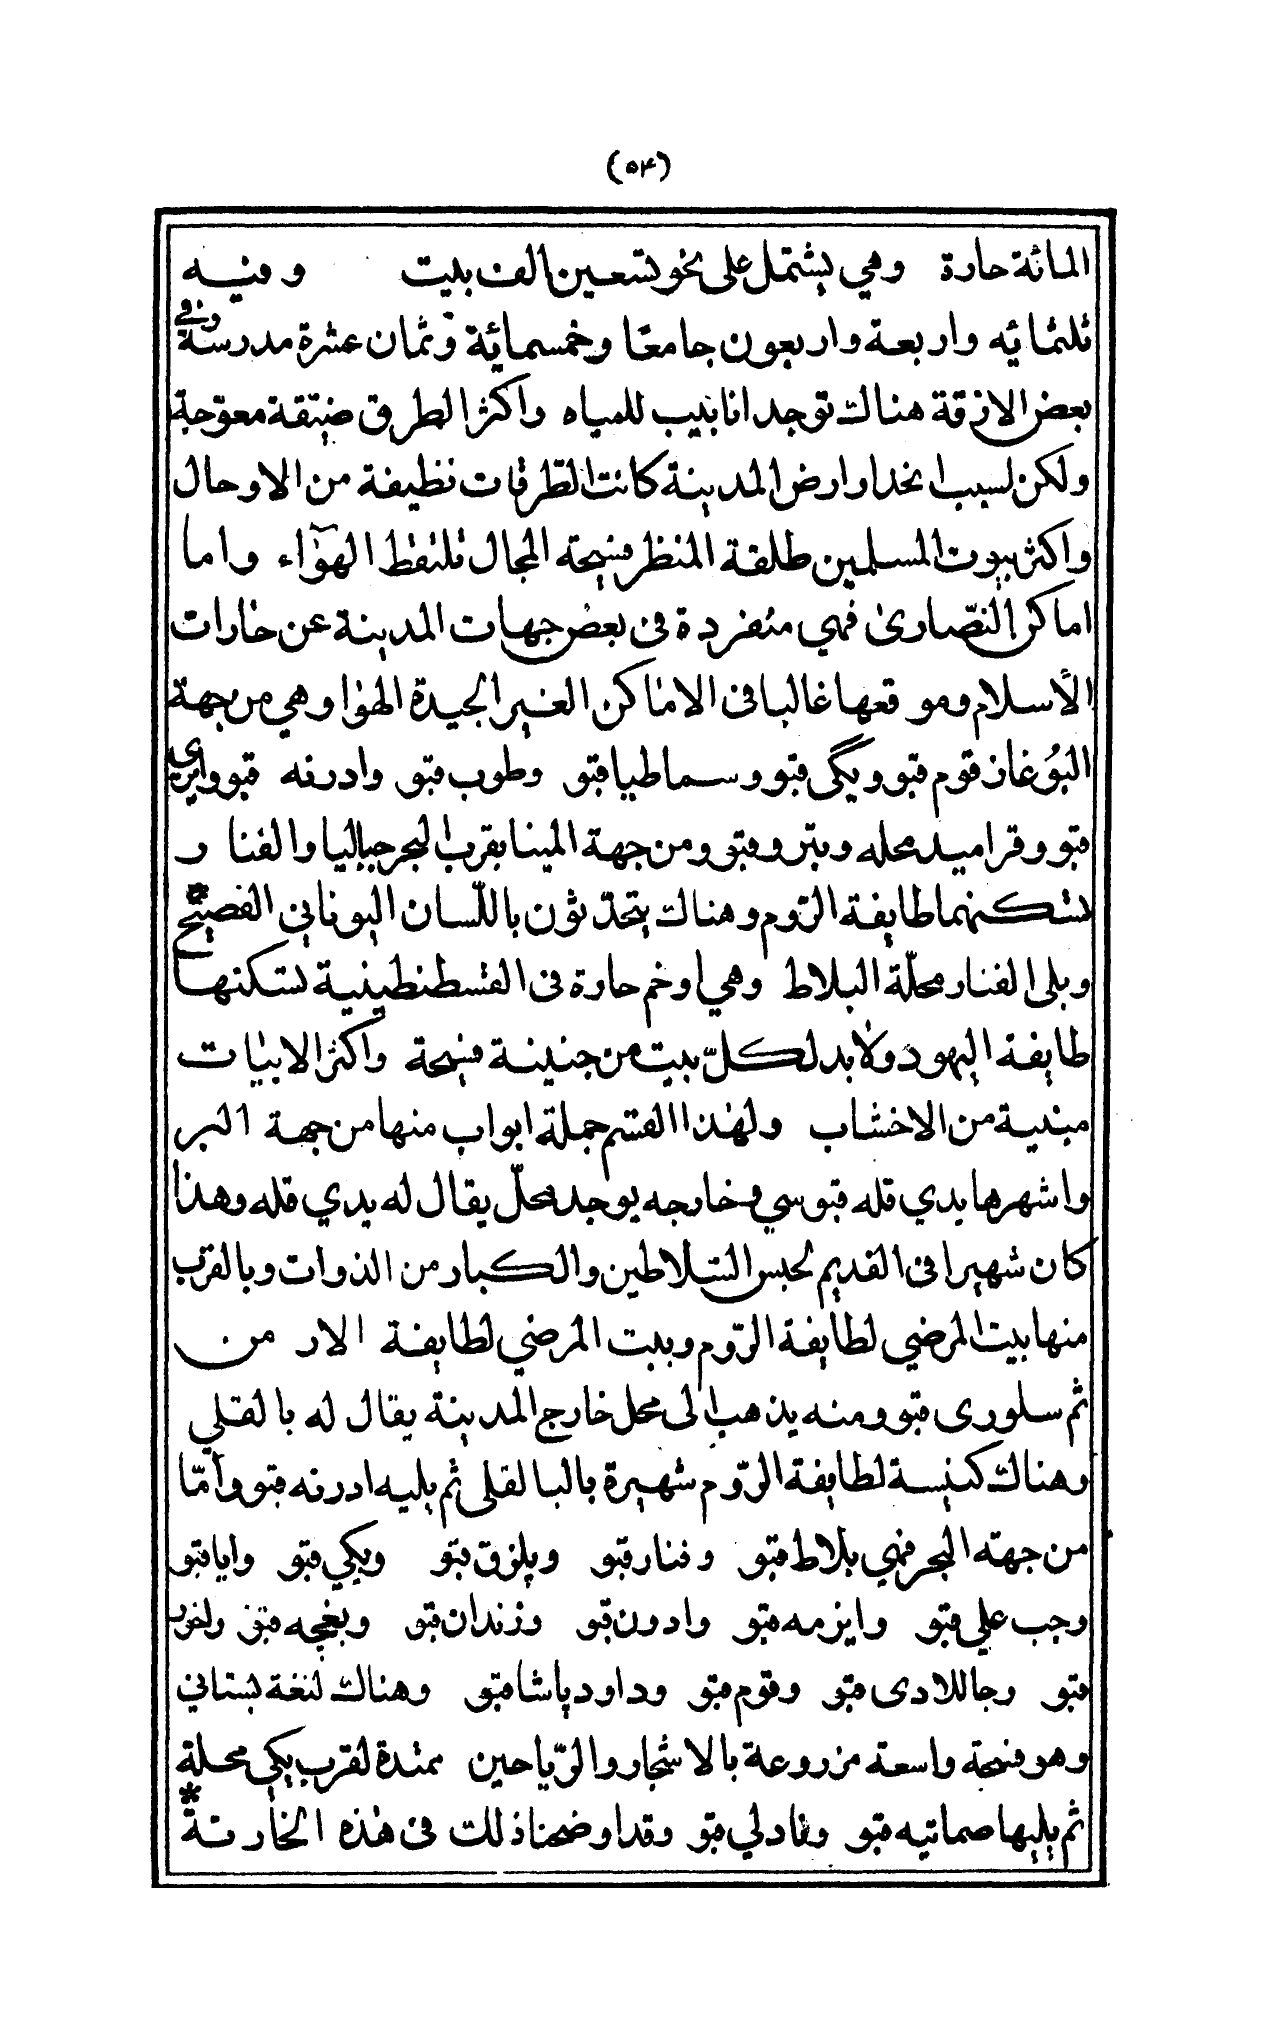 (٥٤)
المائة حارة وهي يشتمل على نحو تسعين الف بيت وفيه
ثلثمائه واربعة واربعون جامعًا وخمسمائة وثمان عشرة مدرسة وفي
بعض الازقة هناك توجد انابيب للمياه واكثر الطرق ضيّقة معوّجة
ولكن لسبب انحدار ارض المدينة كانت الطّرقات نظيفة من الاوحال
واكثر بيوت المسلمين طلقة المنظر فسيحة المجال تلتقط الهوٓاء واما
اماكن النصّارىٰ فهي منفردة في بعض جهات المدينة عن حارات
الأسلام وموقعها غالبا في الاماكن الغير الجيدة الهوا وهي من جهة
البُوغاز قوم قپو ويكى قپو وسماطيا قپو وطوب قپو وادرنه قپو وايرى
قپو وقراميد محله وبترو قپو ومن جهة المينا بقرب البحر جباليا والفنار
تسكنهما طايفة الرّوم وهناك يتحدّثون باللّسان اليوناني الفصيح *
ويلى الفنار محلّة البلاط وهي اوخم حارة في القسطنطينية تسكنها
طايفة اليهود ولابد لكلّ بيت من جنينة فسيحة واكثر الابيات
مبنية من الاخشاب ولهذا القسم جملة ابواب منها من جهة البر
واشهرها يدي قله قپوسي وخارجه يوجد محلّ يقال له يدي قله وهذا
كان شهيرا في القديم لحبس السّلاطين والكبار من الذوات وبالقرب
منها بيت المرضي لطايفة الرّوم وبيت المرضي لطايفة الارمن
ثم سلورى قپو ومنه يذهب الى محل خارج المدينة يقال له بالقلي
وهناك كنيسة لطايفة الرّوم شهيرة بالبالقلي ثم يليه ادرنه قپو وأمّا
من جهته البحر فهي بلاط قپو وفنار قپو وپلزق قپو ويكي قپو وايا قپو
وجب علي قپو وايزمه قپو وادون قپو وزندان قپو وبغچه قپو ولخور
قپو وجاللادى قپو وقوم قپو وداود پاشا قپو وهناك لنغة بستاني
وهو فسحة واسعة مزروعة بالاشجار والرّياحين ممتدة لقرب يكي محلة
ثم يليها صماتيه قپو ونادلي قپو وقد اوضحنا ذلك في هذه الخارتة *